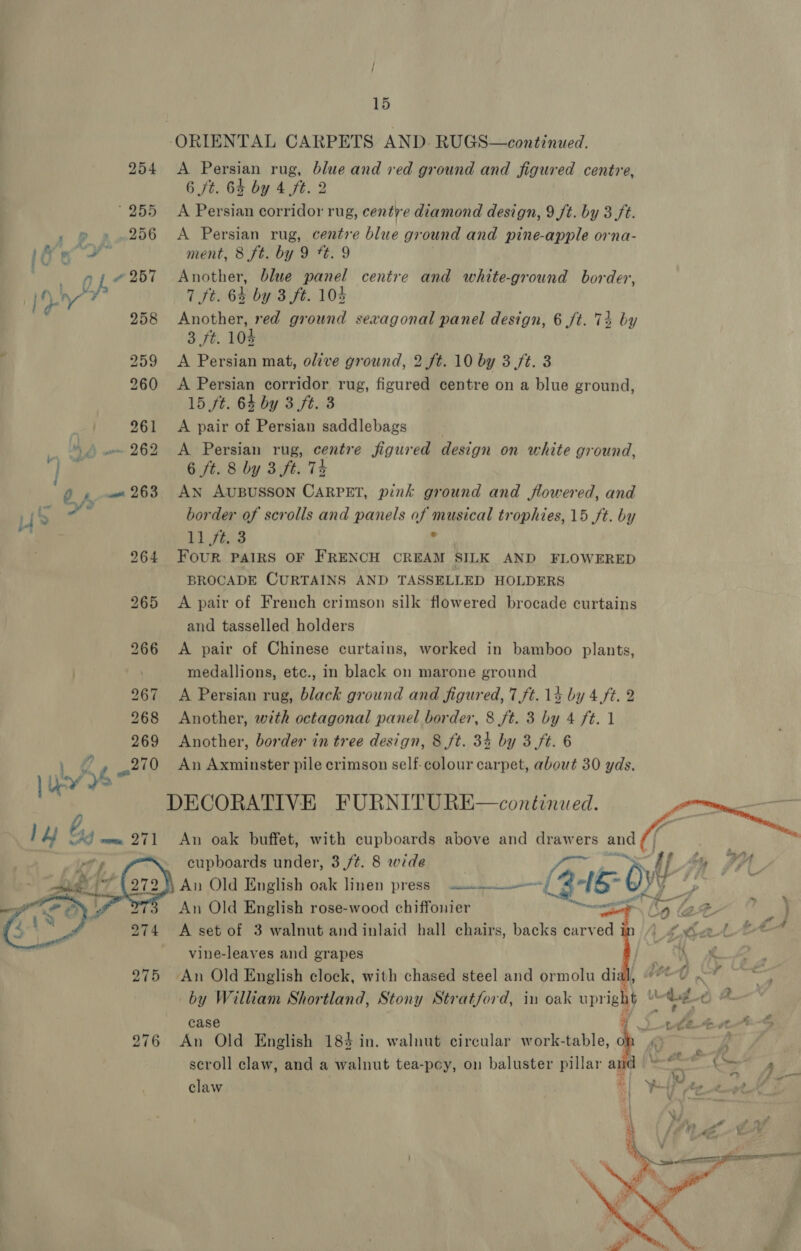 15
ORIENTAL CARPETS AND RUGS—continued.
254 A Persian rug, blue and red ground and figured centre,
6 ft. 6½ by 4 ft. 2
255 A Persian corridor rug, centre diamond design, 9 ft. by 3 ft.
256 A Persian rug, centre blue ground and pine-apple orna-
ment, 8 ft. by 9 ft. 9
257 Another, blue panel centre and white-ground border,
7 ft. 6½ by 3 ft. 10½
258 Another, red ground sexagonal panel design, 6 ft. 7½ by
3 ft. 10½
259 A Persian mat, olive ground, 2 ft. 10 by 3 ft. 3
260 A Persian corridor rug, figured centre on a blue ground,
15 ft. 6½ by 3 ft. 3
261 A pair of Persian saddlebags
262 A Persian rug, centre figured design on white ground,
6 ft. 8 by 3 ft. 7½
263 AN AUBUSSON CARPET, pink ground and flowered, and
border of scrolls and panels of musical trophies, 15 ft. by
11 ft. 3
264 FOUR PAIRS OF FRENCH CREAM SILK AND FLOWERED
BROCADE CURTAINS AND TASSELLED HOLDERS
265 A pair of French crimson silk flowered brocade curtains
and tasselled holders
266 A pair of Chinese curtains, worked in bamboo plants,
medallions, etc., in black on marone ground
267 A Persian rug, black ground and figured, 7 ft. 1½ by 4 ft. 2
268 Another, with octagonal panel border, 8 ft. 3 by 4 ft. 1
269 Another, border in tree design, 8 ft. 3½ by 3 ft. 6
270 An Axminster pile crimson self-colour carpet, about 30 yds.
DECORATIVE FURNITURE—continued.
271 An oak buffet, with cupboards above and drawers and
cupboards under, 3 ft. 8 wide
272 An Old English oak linen press
273 An Old English rose-wood chiffonier
274 A set of 3 walnut and inlaid hall chairs, backs carved in
vine-leaves and grapes
275 An Old English clock, with chased steel and ormolu dial,
by William Shortland, Stony Stratford, in oak upright
case
276 An Old English 18½ in. walnut circular work-table, on
scroll claw, and a walnut tea-poy, on baluster pillar and
claw